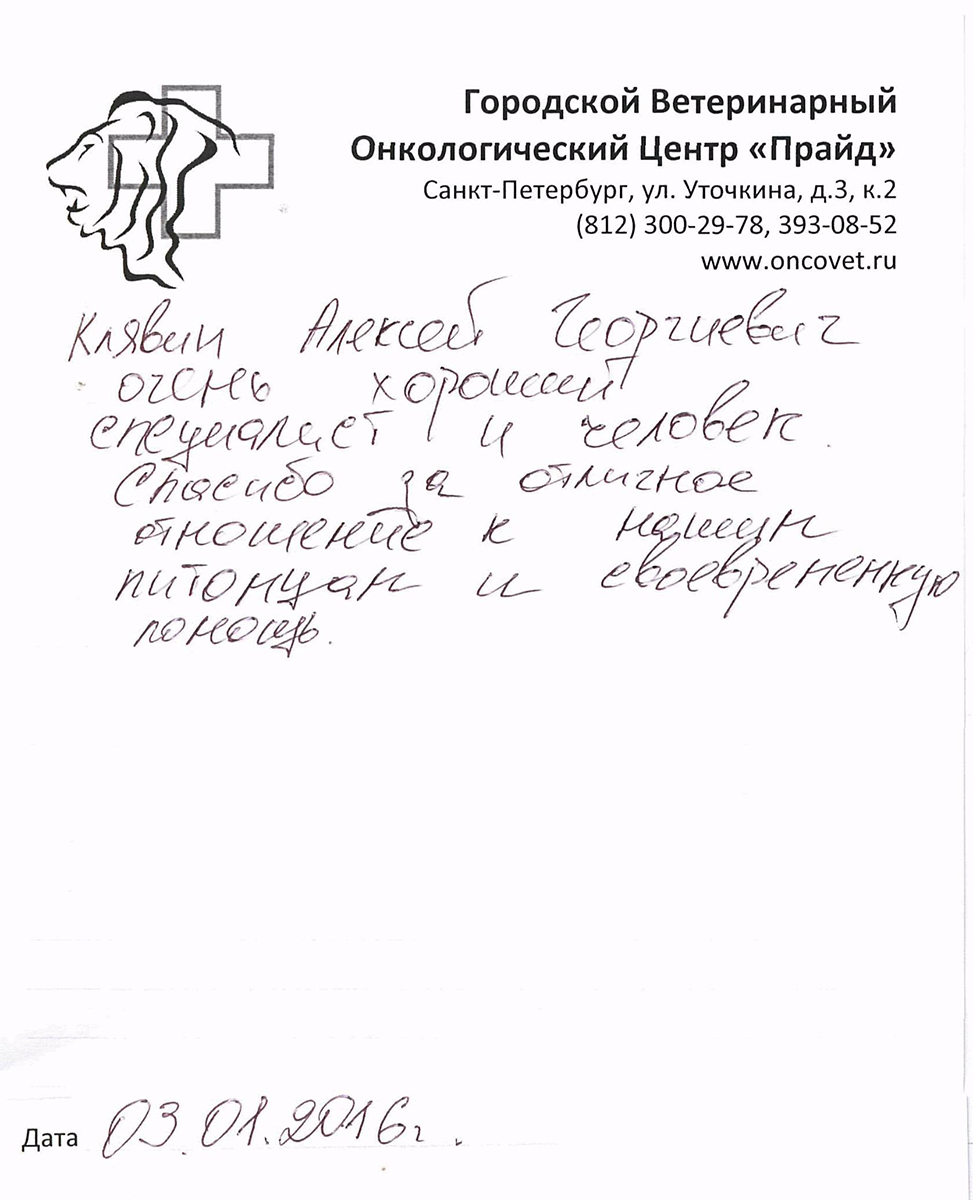 Городской Ветеринарный
Онкологический Центр «Прайд»
Санкт-Петербург, ул. Уточкина, д.3, к.2
(812) 300-29-78, 393-08-52
www.oncovet.ru
Клявин Алексей Георгиевич
очень хороший
специалист и человек.
Спасибо за отличное
отношение к нашим
питомцам и своевременную
помощь.
Дата 03.01.2016г.